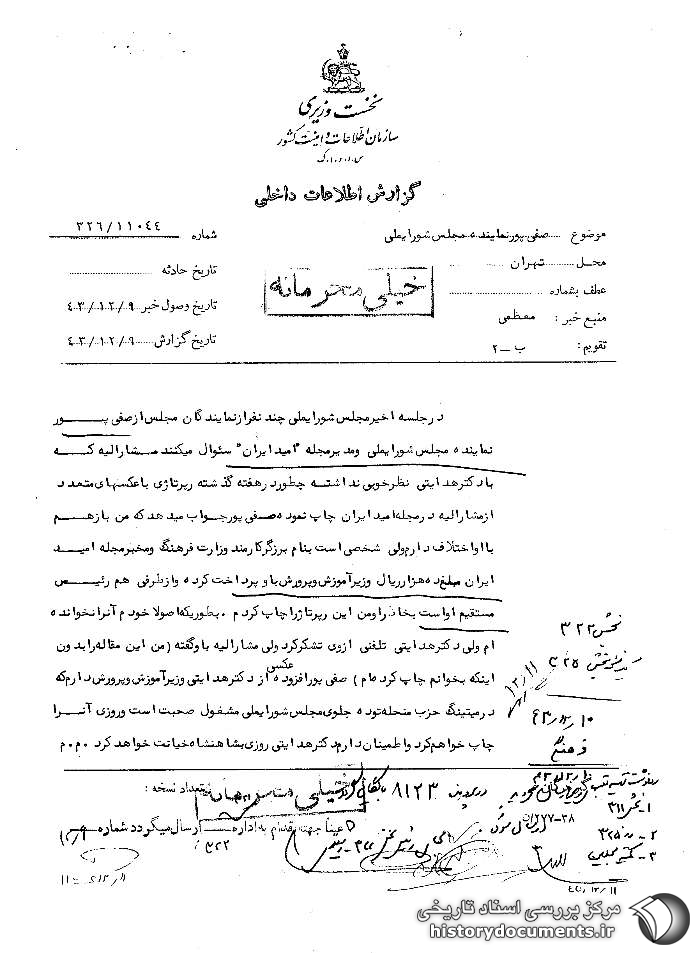 نخست وزیری
سازمان اطلاعات و امنیت کشور
س.ا.و.ا.ک
گزارش اطلاعات داخلی
موضوع صفی پور نماینده مجلس شورایملی
شماره ۳۲۶/۱۱۰۴۴
محل تهران
تاریخ حادثه
خیلی محرمانه
عطف بشماره
تاریخ وصول خبر ۴۳/۱۲/۹
منبع خبر : معظمی
تاریخ گزارش ۴۳/۱۲/۹
تقویم : ب-۲
در جلسه اخیر مجلس شورایملی چند نفر از نمایندگان مجلس از صفی پور
نماینده مجلس شورایملی ومدیر مجله "امید ایران" سئوال میکنند مشارالیه که
با دکتر هدایتی نظر خوبی نداشته چطور در هفته گذشته رپرتاژی با عکسهای متعدد
از مشارالیه در مجله امید ایران چاپ نموده صفی پور جواب میدهد که من باز هم
با او اختلاف دارم ولی شخصی است بنام برزگر کارمند وزارت فرهنگ ومخبر مجله امید
ایران مبلغ ده هزار ریال وزیر آموزش و پرورش باو پرداخت کرده و از طرفی هم رئیس
مستقیم او است بخاطر او من این رپرتاژ را چاپ کردم . بطوریکه اصولا خودم آنرا نخوانده
ام ولی دکتر هدایتی تلفنی از وی تشکر کرد ولی مشارالیه باو گفته ( من این مقاله را بدون
اینکه بخوانم چاپ کرده ام ) صفی پور افزوده عکسی از دکتر هدایتی وزیر آموزش و پرورش دارم که
در میتینگ حزب منحله توده جلوی مجلس شورایملی مشغول صحبت است و روزی آنرا
چاپ خواهم کرد و اطمینان دارم دکتر هدایتی روزی بشاهنشاه خیانت خواهد کرد . م.م
بخش ۳۲۲
۱۲/۱۱
۴۳/۱۲/۱۰
فرهنگ
خیلی محرمانه
تعداد نسخه :
۸۱۲۳
۱- بخش ۳۱۱
عینا جهت اقدام به اداره ارسال میگردد شماره
۳۲۲
۲- ۳۲۵
۳-
مرکز بررسی اسناد تاریخی
historydocuments.ir